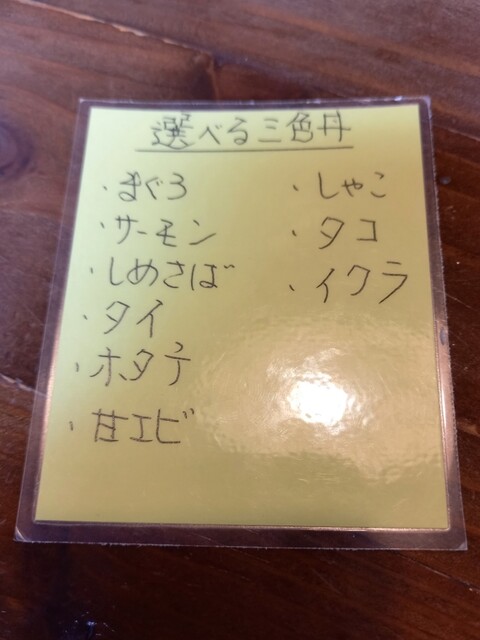 選べる三色丼
・まぐろ
・サーモン
・しめさば
・タイ
・ホタテ
・甘エビ
・しゃこ
・タコ
・イクラ